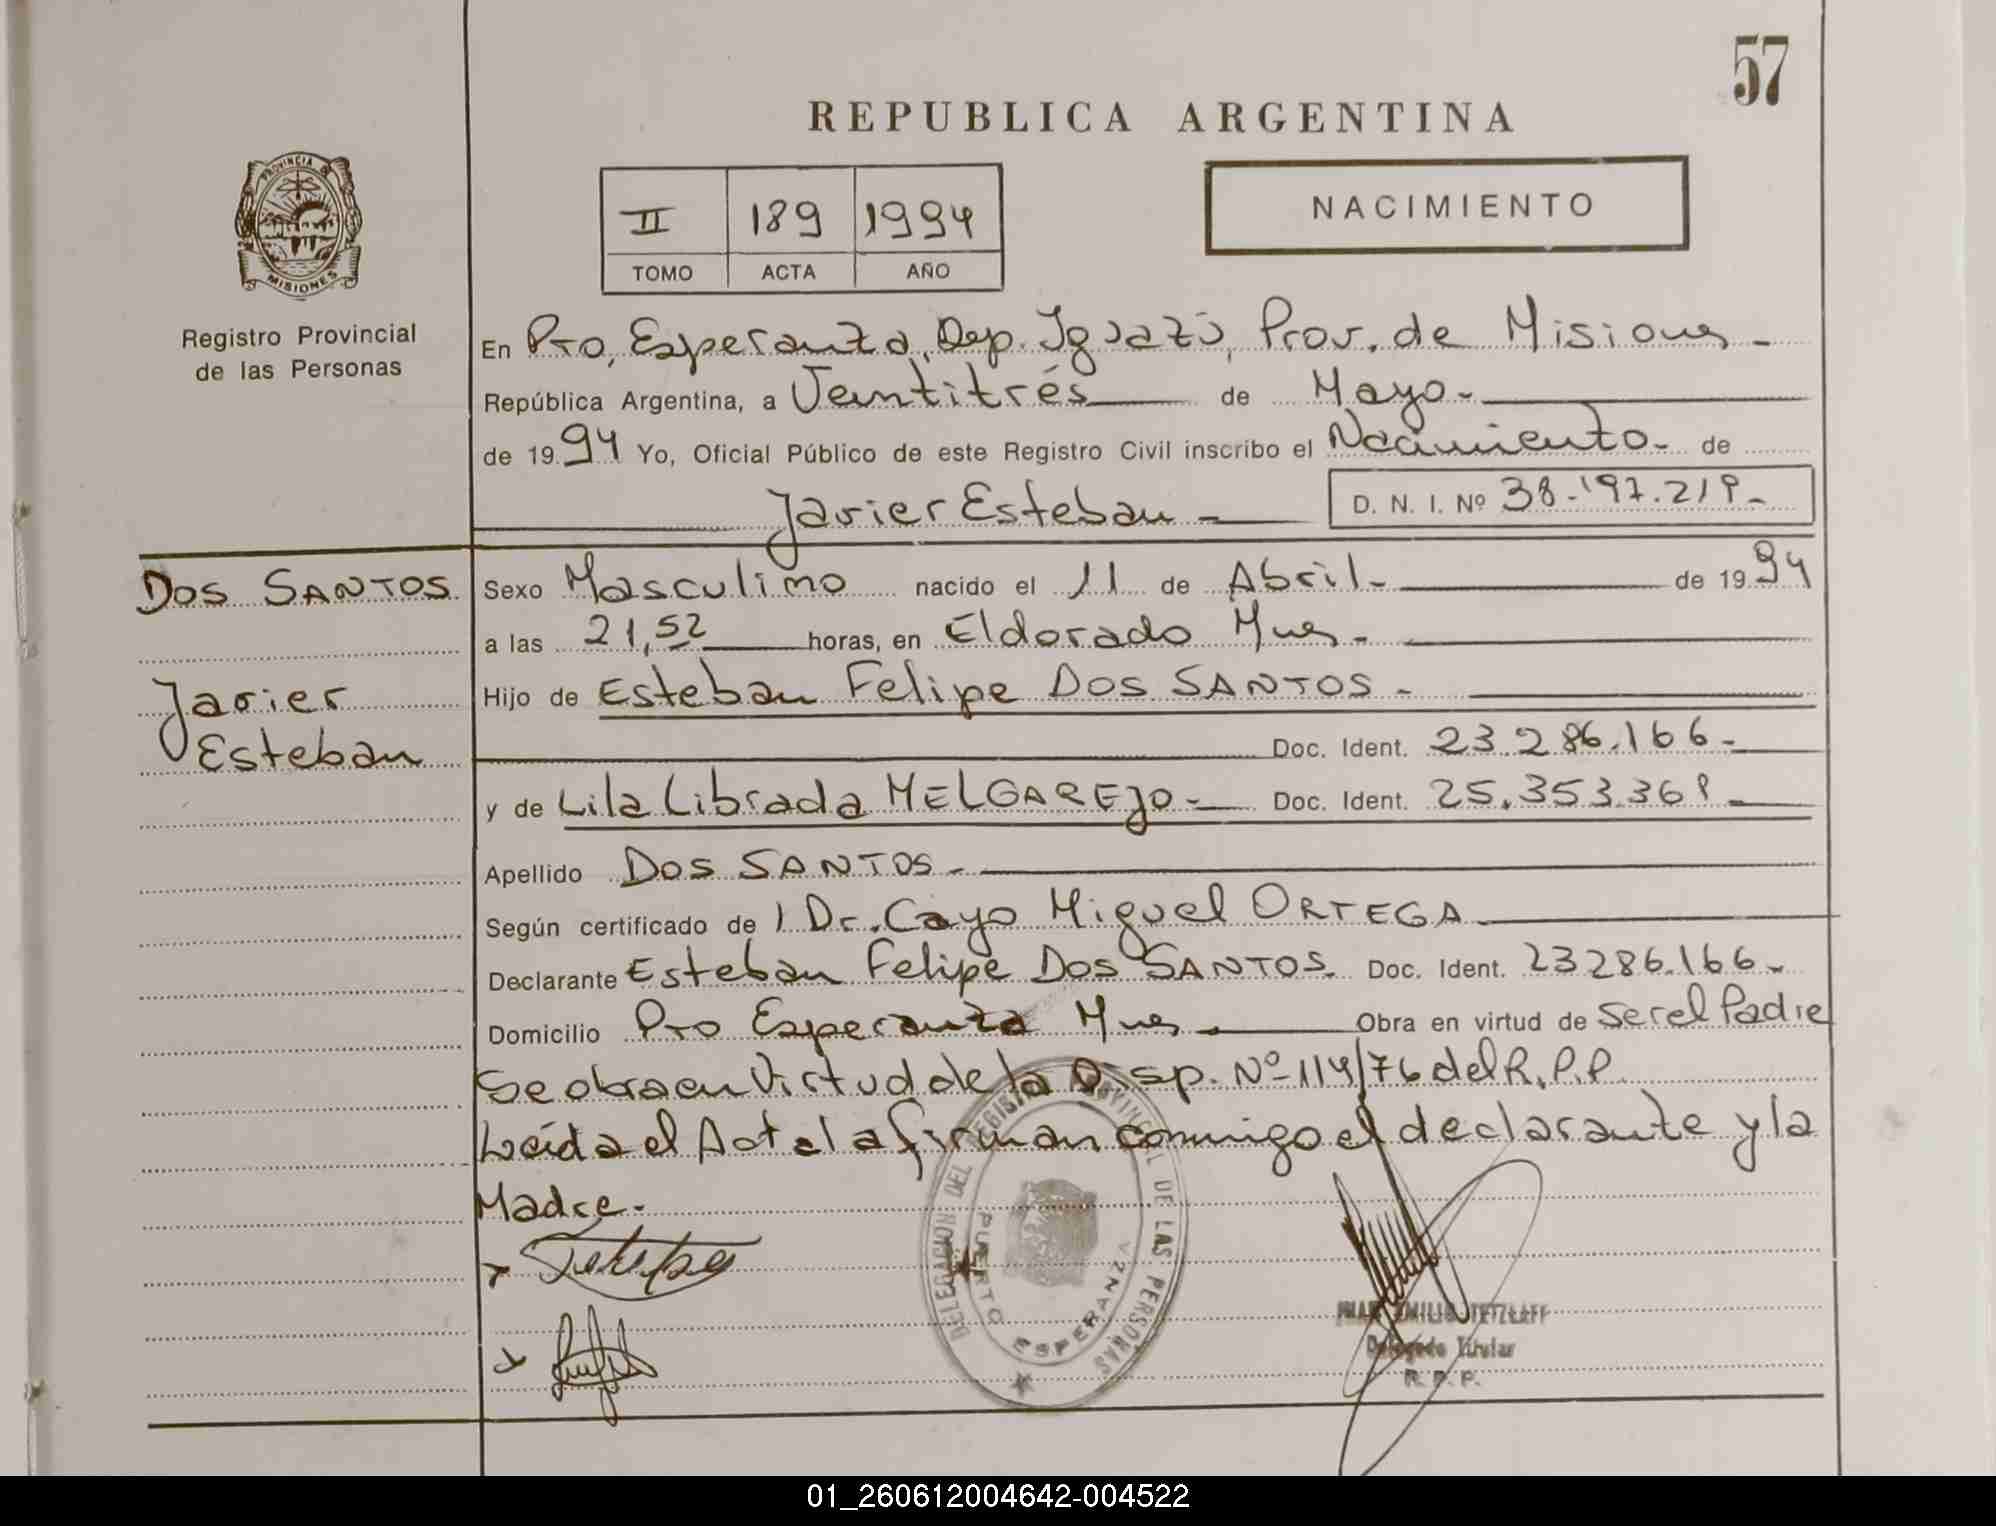 57
REPUBLICA ARGENTINA
PROVINCIA DE
MISIONES
Registro Provincial
de las Personas
II 189 1994
TOMO ACTA AÑO
NACIMIENTO
En Pto, Esperanza, Dep. Iguazú, Prov. de Misiones -
República Argentina, a Veintitrés de Mayo.-
de 1994 Yo, Oficial Público de este Registro Civil inscribo el Nacimiento - de
Javier Esteban -
D. N. I. Nº 38.197.219-
DOS SANTOS
Javier
Esteban
Sexo Masculino nacido el 11 de Abril - de 1994
a las 21,52 horas, en Eldorado Mnes -
Hijo de Esteban Felipe DOS SANTOS -
Doc. Ident. 23.286.166-
y de Lila Librada MELGAREJO - Doc. Ident. 25.353.369-
Apellido DOS SANTOS -
Según certificado de 1 Dr. Cayo Miguel ORTEGA
Declarante Esteban Felipe DOS SANTOS. Doc. Ident. 23286.166-
Domicilio Pto Esperanza Mnes - Obra en virtud de ser el Padre
Se obra en Virtud de la Disp. Nº 114/76 del R.P.P.
Leída el Acta la firman conmigo el declarante y la
Madre.-
DELEGACION DEL REGISTRO PROVINCIAL DE LAS PERSONAS
PUERTO ESPERANZA
EMILIO TETZLAFF
Delegado Titular
R. P. P.
01_260612004642-004522